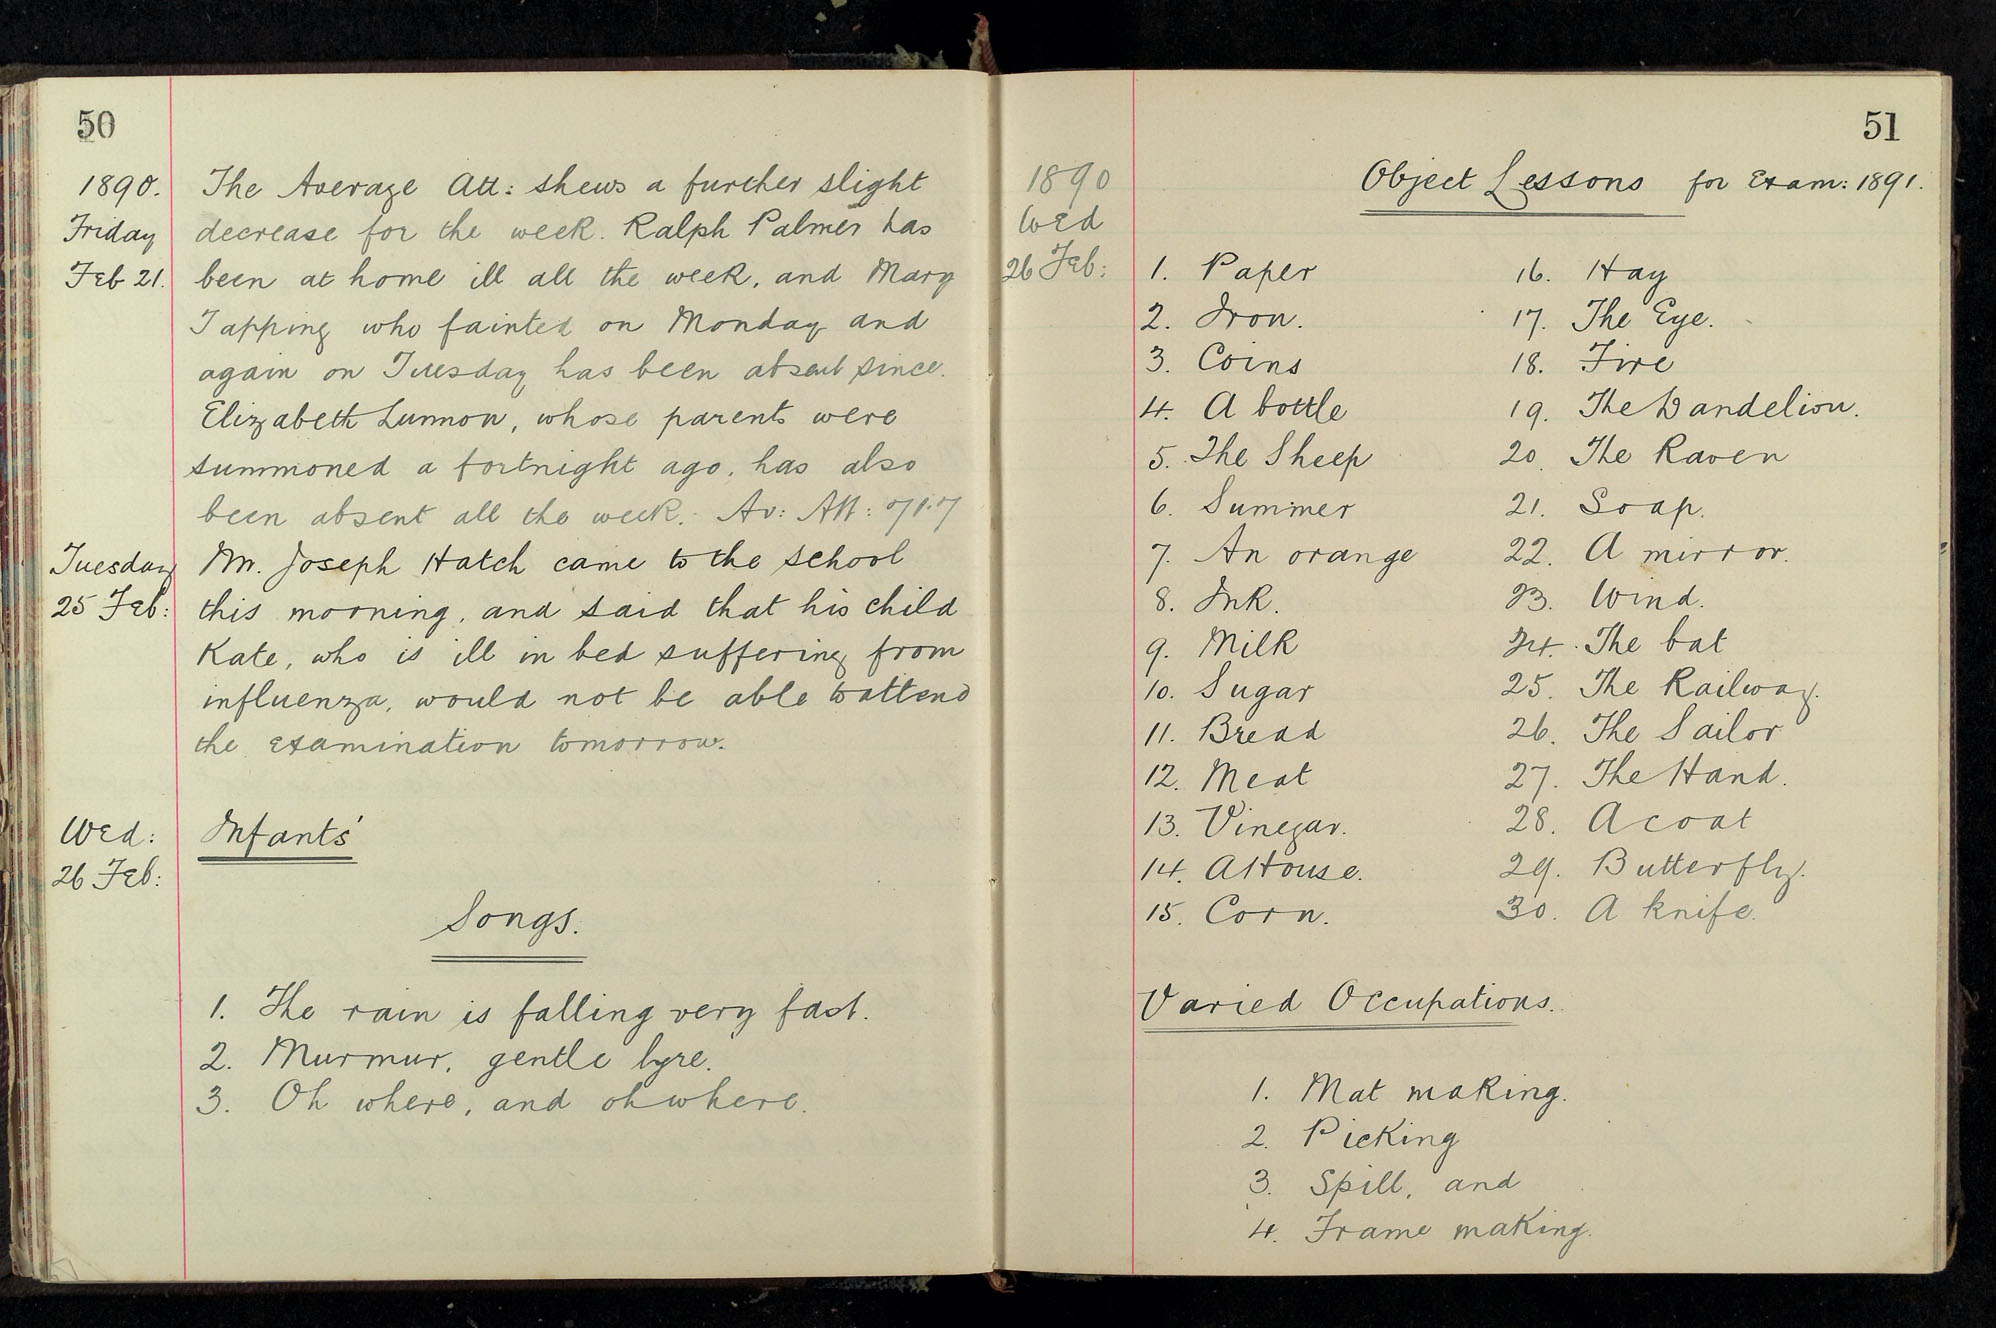 50
1890. The Average Att: shews a further slight
Friday decrease for the week. Ralph Palmer has
Feb 21. been at home ill all the week, and Mary
Tapping who fainted on Monday and
again on Tuesday has been absent since.
Elizabeth Lunnon, whose parents were
summoned a fortnight ago, has also
been absent all the week. Av: Att: 71.7
Tuesday Mr. Joseph Hatch came to the school
25 Feb: this morning, and said that his child
Kate, who is ill in bed suffering from
influenza, would not be able to attend
the examination tomorrow.
Wed: Infants'
26 Feb:
Songs.
1. The rain is falling very fast.
2. Murmur, gentle lyre.
3. Oh where, and oh where.
51
1890 Object Lessons for Exam: 1891.
Wed
26 Feb:
1. Paper
2. Iron.
3. Coins
4. A bottle
5. The Sheep
6. Summer
7. An orange
8. Ink.
9. Milk
10. Sugar
11. Bread
12. Meat
13. Vinegar.
14. A House.
15. Corn.
16. Hay
17. The Eye.
18. Fire
19. The Dandelion.
20. The Raven
21. Soap.
22. A mirror.
23. Wind.
24. The bat
25. The Railway.
26. The Sailor
27. The Hand.
28. A coat
29. Butterfly.
30. A knife.
Varied Occupations.
1. Mat making.
2. Picking
3. Spill, and
4. Frame making.